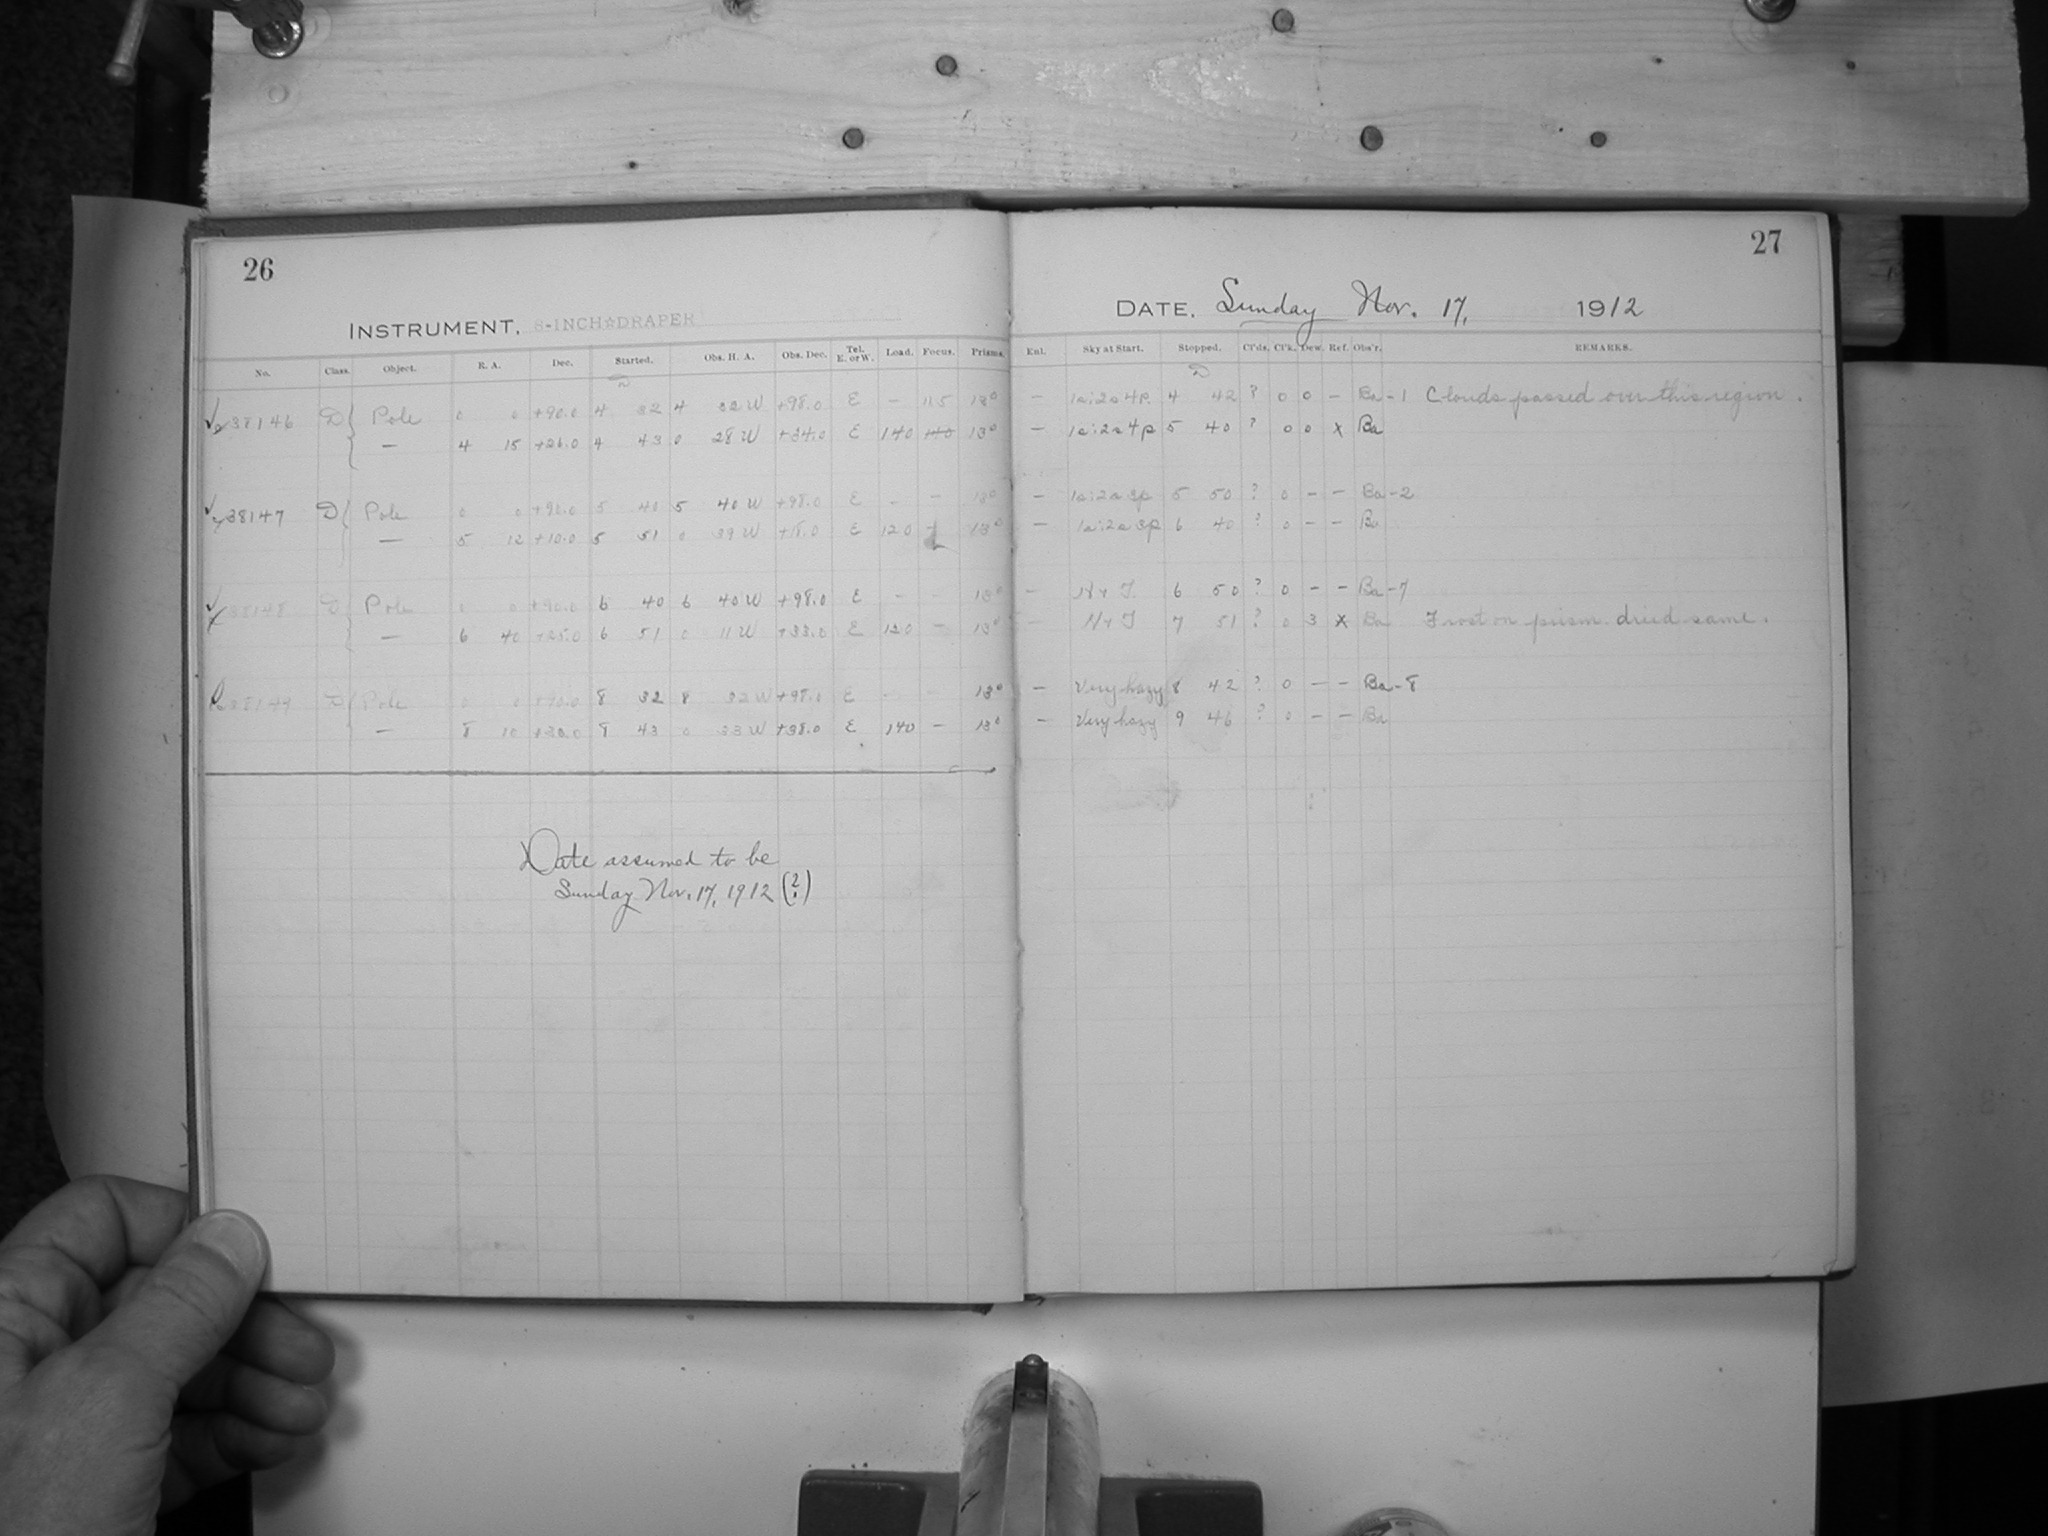 26
INSTRUMENT, 8-INCH☆DRAPER
No. Class. Object. R. A. Dec. Started. Obs. H. A. Obs. Dec. Tel. E. or W. Load. Focus. Prisms.
38146 D Pole 0 0 +90.0 4 32 4 32 W +98.0 E – 115 13°
— 4 15 +26.0 4 43 0 28 W +34.0 E 140 13°
38147 D Pole 0 0 +90.0 5 40 5 40 W +98.0 E - - 13°
— 5 12 +10.0 5 51 0 39 W +18.0 E 120 13°
38148 D Pole 0 0 +90.0 6 40 6 40 W +98.0 E - - 13°
— 6 40 +25.0 6 51 0 11 W +33.0 E 120 - 13°
38149 D Pole 0 0 +90.0 8 32 8 32 W +98.0 E - - 13°
— 8 10 +30.0 8 43 0 33 W +38.0 E 140 - 13°
Date assumed to be
Sunday Nov. 17, 1912 (?)
27
DATE, Sunday Nov. 17, 1912
Enl. Sky at Start. Stopped. Cl'ds. Cl'k. Dew. Ref. Obs'r. REMARKS.
– 1a:2a4p. 4 42 ? 0 0 – Ba-1 Clouds passed over this region.
– 1a:2a4p 5 40 ? 0 0 x Ba
– 1a:2a3p 5 50 ? 0 - - Ba-2
– 1a:2a3p 6 40 ? 0 - - Ba
– 6 50 ? 0 - - Ba-7
– 7 51 ? 0 3 x Ba Frost on prism dried same.
– Very hazy 8 42 ? 0 - - Ba-8
– Very hazy 9 46 ? 0 - - Ba